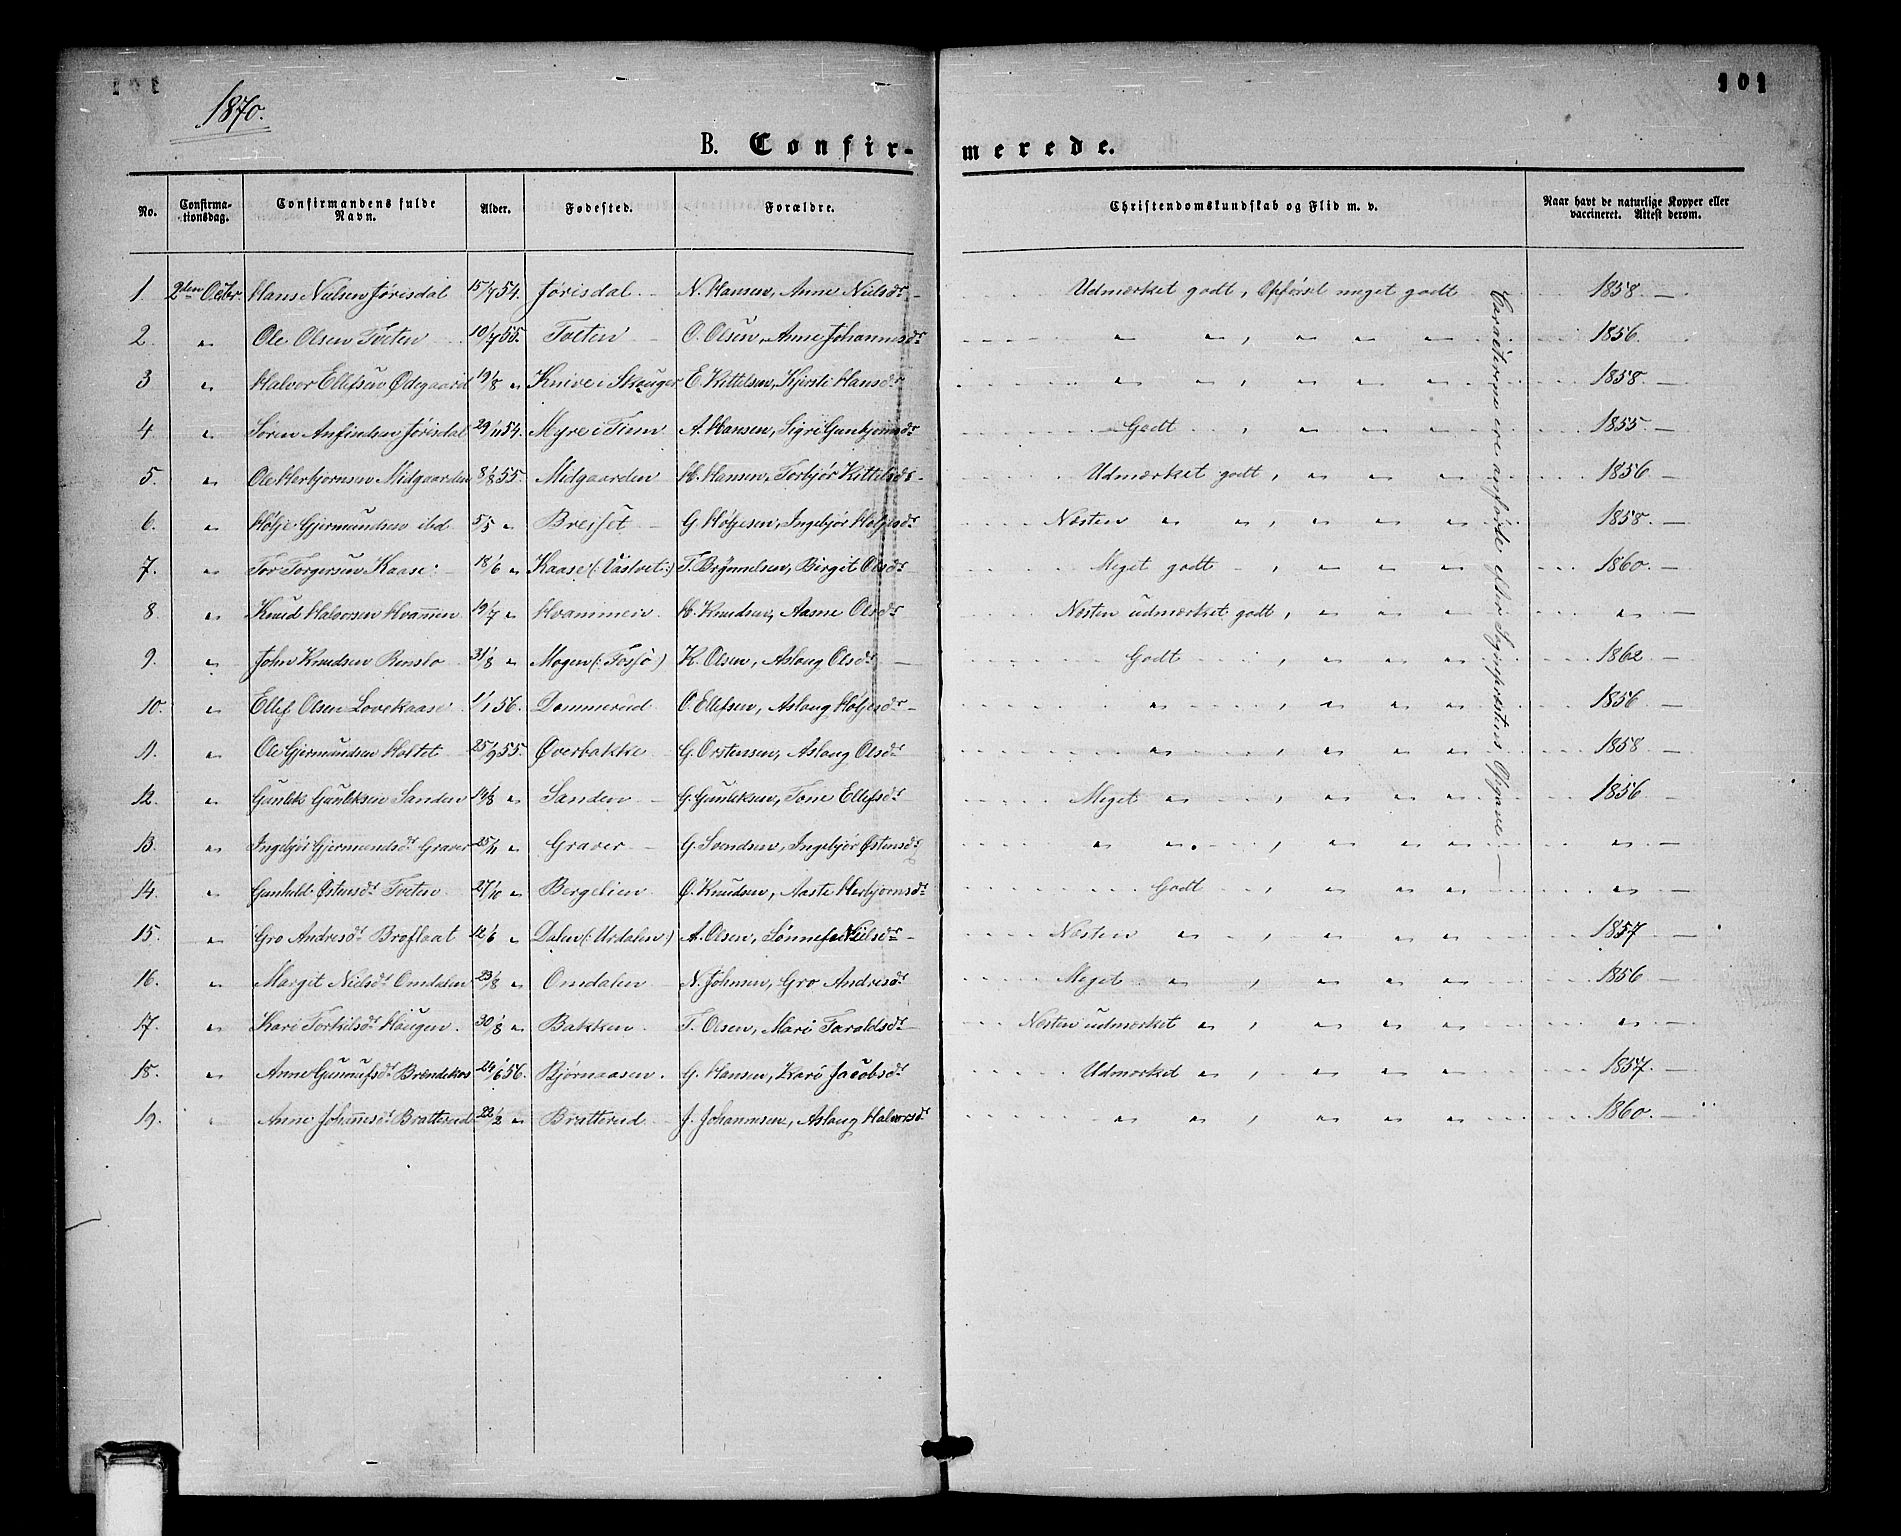 101
1870.
B. Confir- merede.
No. Confirma-tionsdag. Confirmandens fulde Navn. Alder. Fødested. Forældre. Christendomskundskab og Flid m. v. Naar havt de naturlige Kopper eller vaccineret. Attest derom.
1. 2den Octbr Hans Nielsen Jørisdal 15/7 54. Jørisdal N. Hansen, Anne Nielsdr Udmærket godt, Opførsel meget godt 1858.
2. " Ole Olsen Tveten 10/7 55. Tveten O. Olsen, Anne Johannesdr " " , " " " 1856.
3 " Halvor Ellefsen Ødegaard 19/8 " Knive i Skouger E. Kittelsen, Kjersti Hansdr " " , " " " 1858.
4 " Søren Anfindsen Jørisdal 29/11 54. Myre i Tinn A. Hansen, Sigri Gunbjørnsdr Godt , " " " 1855
5. " Ole Herbjørnsen Midgaarden 8/8 55. Midgaarden H. Hansen, Torbjør Kittelsdr Udmærket godt, " " " 1856
6. " Hølje Gjermundsen ibd 5/5 " Breiset G. Høljesen, Ingebjør Høljesdr Næsten " " , " " " 1858
7. " Tor Torgersen Kaase 18/6 " Kaase (: Vastvet:) T. Brynnelsen, Birgit Olsdr Meget godt , " " " 1860.
8. " Knud Halvorsen Hvammen 19/7 " Hvammen H. Knudsen, Aasne Olsdr Næsten udmærket godt, " " " "
9. " John Knudsen Renslo 31/8 " Mogen (: Fossø) K. Olsen, Aslaug Olsdr Godt , " " " 1862
10. " Ellef Olsen Lovekaase 1/1 56. Dommerud O. Ellefsen, Aslaug Høljesdr " , " " " 1856
11. " Ole Gjermundsen Holtet 25/9 55. Øverbakke G. Orstensen, Aslaug Olsdr " , " " " 1858
12. " Gunleik Gunleksen Sanden 14/8 " Sanden G. Gunleksen, Tone Ellefsdr Meget " , " " " 1856
13. " Ingebjør Gjermundsdr Graver 25/11 " Graver G. Svendsen, Ingebjør Østensdr " " , " " " "
14. " Gunhild Østensdr Tveten 27/10 " Bergelien Ø. Knudsen, Aaste Herbjørnsdr Godt , " " " "
15. " Gro Andresdr Brofloat 12/6 " Dalen (: Urdalen:) A. Olsen, Sønnefe Nielsdr Næsten " , " " " 1857
16. " Margit Nielsdr Omdalen 23/8 " Omdalen N. Johnsen, Gro Andresdr Meget " , " " " 1856
17. " Kari Torkilsdr Haugen 30/8 " Bakken T. Olsen, Mari Taraldsdr Næsten udmærket " , " " " "
18. " Anne Gunnufsdr Brendekas 24/6 56. Bjørnaasen G. Hansen, Kari Jacobsdr Udmærket " , " " " 1857.
19. " Anne Johannesdr Bratterud 22/2 " Bratterud J. Johannesen, Aslaug Halvorsdr " " , " " " 1860.
Caractererne ere anførte efter Sognepræstens Opgave.